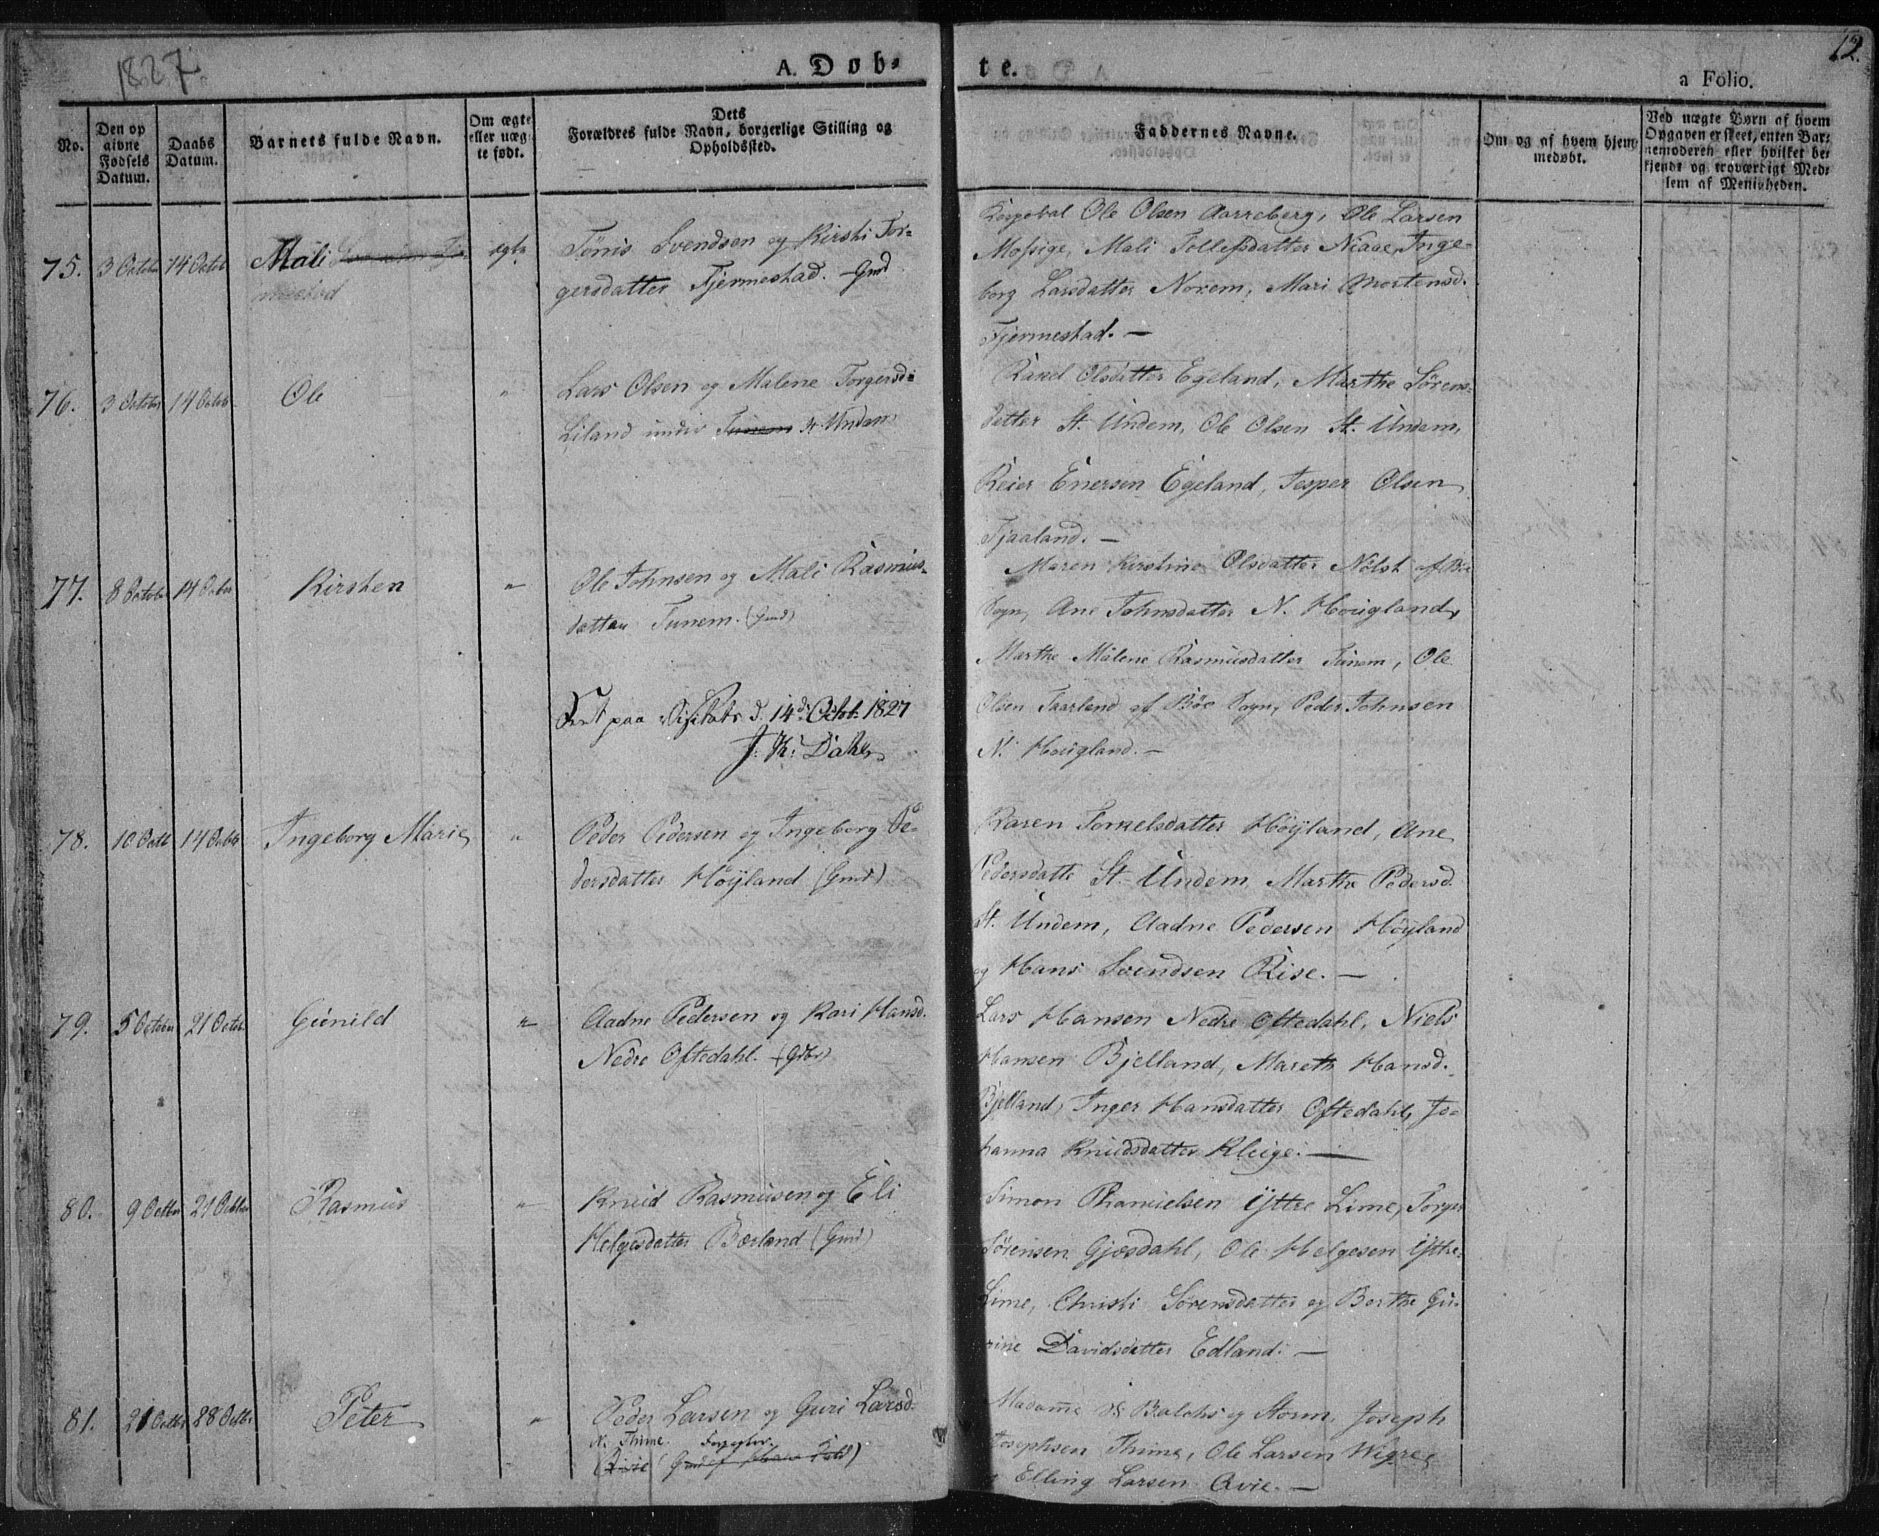 1827.
A. Døb-
te.
12.
a Folio.
No.
Den op
givne
Fødsels
Datum.
Daabs
Datum.
Barnets fulde Navn.
Om ægte
eller uæg-
te født.
Dets
Forældres fulde Navn, borgerlige Stilling og
Opholdssted.
Faddernes Navne.
Om og af hvem hjem-
medøbt.
Ved uægte Børn af hvem
Opgaven er skeet, enten Bar-
nemoderen eller hvilket be-
kjendt og troværdigt Med-
lem af Menigheden.
75. 3 Octobr 14 Octob Mali
ægte
Tönis Svendsen og Kirsti Tor-
gersdatter Fjermestad. Gmd
Ole Olsen Aarreberg, Ole Larsen
Mossige, Mali Tollefsdatter Niaae, Inge-
borg Larsdatter Norem, Mari Mortensd.
Fjermestad. —
76. 3 October 14 Octob Ole "
Lars Olsen og Malene Torgersd-
Liland under St Undem
Rakel Olsdatter Egeland, Marthe Sörens-
datter St. Undem, Ole Olsen St. Undem,
Reier Enersen Egeland, Jesper Olsen
Fjaaland. —
77. 8 Octobr 14 Octobr Kirsten "
Ole Johnsen og Mali Rasmus-
datter Tunem. (Gmd)
Maren Kirstine Olsdatter Nølst af Bøe
Sogn, Ane Johnsdatter N. Hougland,
Marthe Malene Rasmusdatter Tunem, Ole
Olsen Taarland af Böe Sogn, Peder Johnsen
N. Hougland. —
paa Visitats d. 14de Octob. 1827
78. 10 Octb 14 Octobr Ingeborg Marie "
Peder Pedersen og Ingeborg Pe-
dersdatter Höyland (Gmd)
Karen Torkelsdatter Höyland, Ane
Pedersdatte St. Undem, Marthe Pedersd.
St. Undem, Aadne Pedersen Höyland
og Hans Svendsen Rise. —
79. 5 October 21 Octob. Gunild "
Aadne Pedersen og Kari Hansd.
Nedre Oftedahl. (Gbr)
Lars Hansen Nedre Oftedahl, Niels
Hansen Bjelland, Mareth Hansd.
Bjelland, Inger Hansdatter Oftedahl, Jo-
hanna Knudsdatter Kleige. —
80. 9 Octbr 21 Octbr Rasmus "
Knud Rasmusen og Eli
Helgesdatter Bærland (Gmd)
Simon Thamielsen Yttre Lime, Torger
Sörensen Gjesdahl, Ole Helgesen Yttre
Lime, Christi Sörensdatter og Berthe Gu-
rine Davidsdatter Edland. —
81. 21 Octbr 28 Octbr Peter "
Peder Larsen og Guri Larsd.
N. Thime.
Madame Balchs og Storm, Joseph
Josephsen Thime, Ole Larsen Wigre
Elling Larsen Avie. —